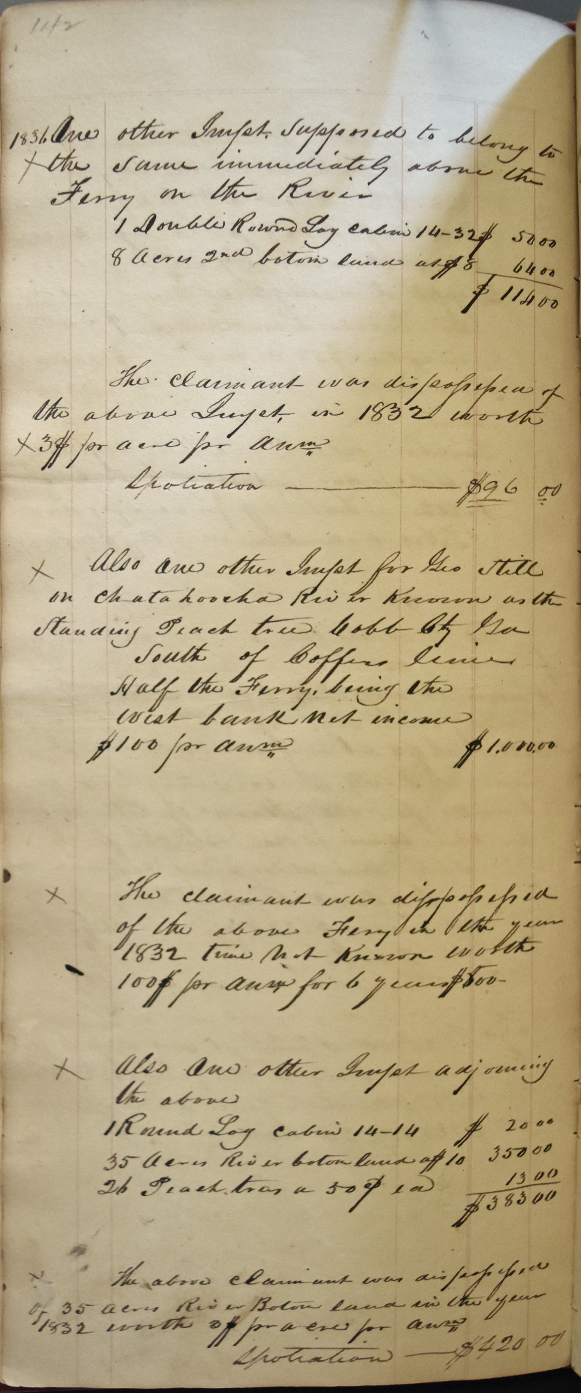 142
1836 One other Impt. Supposed to belong to
× the same immediately above the
Ferry on the River
1 Double Round Log cabin 14-32 $ 50 00
8 Acres 2nd botom land at $8 64 00
$ 114 00
The claimant was dispossessed of
the above Impt. in 1832 worth
× 3$ pr acre pr Anm
Spoliation $96 00
× Also One other Impt for Geo Still
on Chatahoocha River Known as the
Standing Peach tree Cobb Cty Ga
South of Coffers line
Half the Ferry, being the
West bank net income
$100 pr anm $1,000.00
× The claimant was dispossessed
of the above Ferry in the year
1832 time not Known worth
100$ pr anm for 6 years $600-
× Also One other Impt adjoining
the above
1 Round Log cabin 14-14 $ 20 00
35 Acres River botom land a $10 350 00
26 Peach trees a 50¢ ea 13 00
$383 00
× The above claimant was dispossessed
of 35 acres River Botom land in the year
1832 worth 2$ pr acre pr anm
Spoliation $420 00